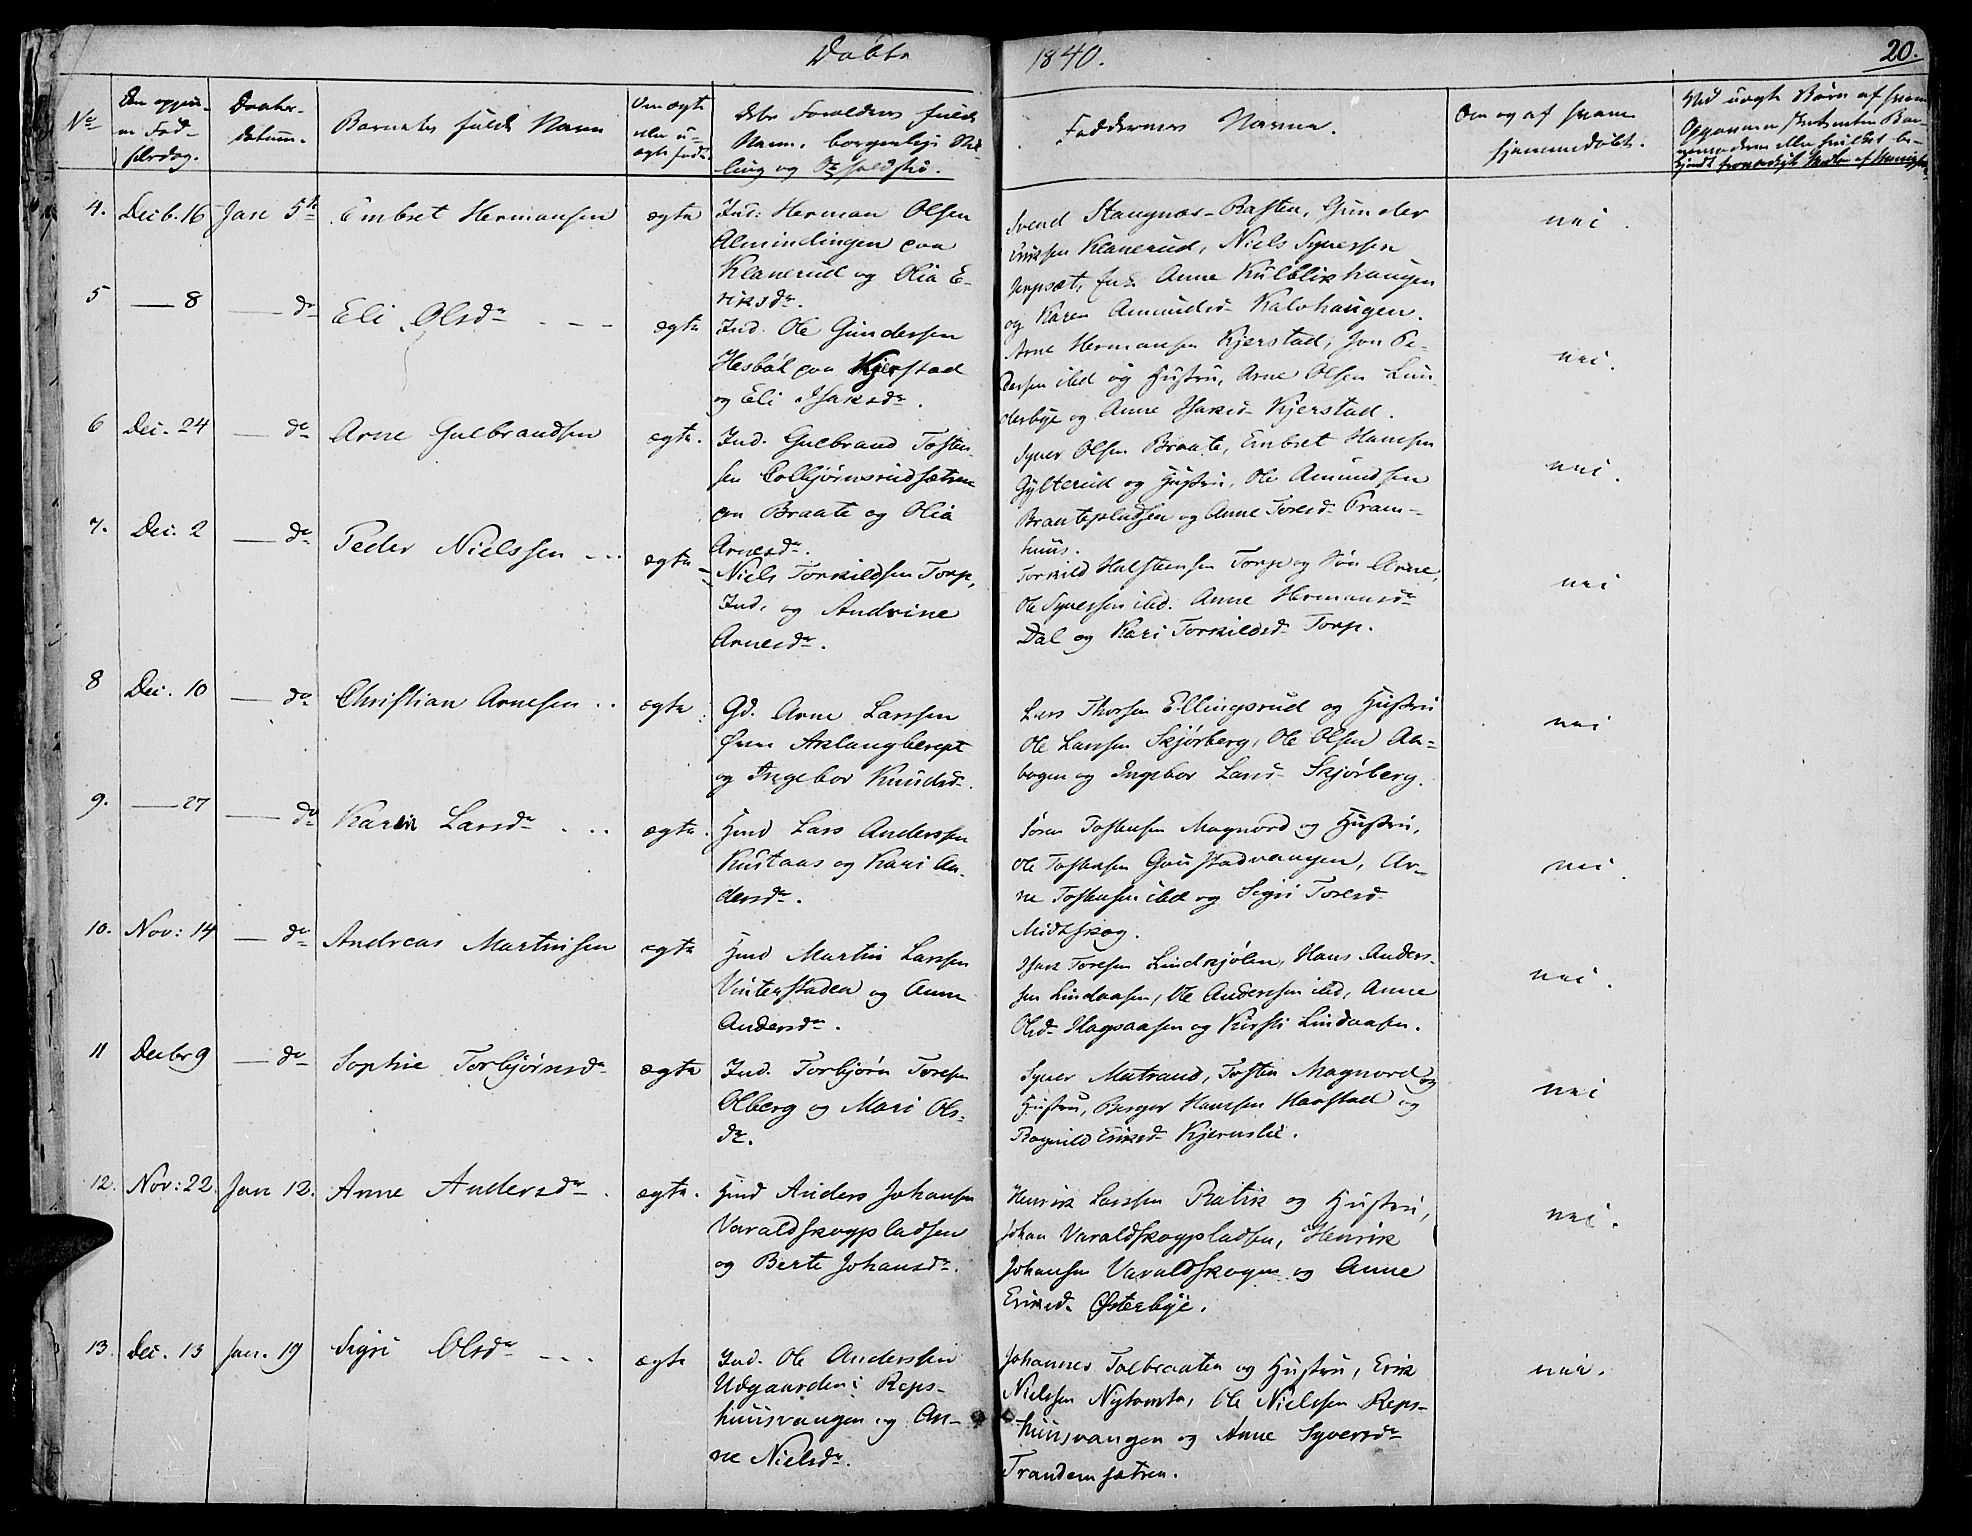 Døbte 1840. 20.
No
Den opgiv-
ne Fød-
selsdag.
Daabs-
datum.
Barnets fulde Navn
Om ægte
eller u-
ægte født.
Forældres fulde
Navn, borgerlige Stil-
ling og Opholdsted.
Faddernes Navne.
Om og af hvem
hjemmedøbt.
Ved uægte Børn af hvem
4. Decb. 16 Jan 5te Embret Hermansen ægte Ind: Herman Olsen
Almindingen paa
Klanerud og Olia E-
riksdr.
Svend Stangnæs-Rasten, Gunder
Eriksen Klanerud, Niels Syversen
Anne Kulblikhaugen
og Karen Amundsd Kalvhaugen.
nei.
5 — 8 — do Eli Olsdr - - - ægte Ind. Ole Gundersen
Hesbøl paa Kjerstad
og Eli Isaksdr.
Arne Hermansen Kjerstad, Jon Pe-
dersen ibd og Hustru, Arne Olsen Lun-
derbye og Anne Isaksd Kjerstad.
nei.
6 Dec. 24 — do Arne Gulbrandsen ægte. Ind. Gulbrand Tosten-
sen Colbjørnsrudsætren
paa Braate og Olia
Arnesdr.
Syver Olsen Braate, Embret Hansen
Gylterud og Hustru, Ole Amundsen
Braatepladsen og Anne Toresd Fram-
huus.
nei.
7. Dec. 2 — do Peder Nielssen - - - ægte - Niels Torkildsen Torp,
Ind, og Andrine
Arnesdr.
Torkild Halstensen Torp og Søn Arne,
Ole Syversen ibd. Anne Hermansdr
Dal og Kari Torkildsd Torp.
nei
8 Dec. 10 — do Christian Arnesen . . ægte . Gd. Arne Larssen
Øvre Aslangberget
og Ingebor Knudsd.
Lars Thorsen Ellingsrud og Hustru
Ole Larssen Skjørberg, Ole Olsen Aa-
bogen og Ingebor Larsd Skjørberg.
nei
9. — 27 — do Karen Larsdr . . . ægte. Huusmd Lars Anderssen
Kustaas og Kari An-
dersdr.
Søren Tostensen Magnord og Hustru,
Ole Tostensen Gaustadvangen, Ar-
ne Tostensen ibd og Sigri Toresd
Midtskog.
nei.
10. Nov: 14 — do Andreas Martinsen ægte Huusmd Martin Larssen
Vinterstaden og Anne
Andersdr.
Isak Toresen Lindkjølen, Hans Anders-
sen Lindaasen, Ole Anderssen ibd, Anne
Olsd Hagsaasen og Kirsti Lindaasen.
nei.
11 Decbr 9 — do Sophie Torbjørnsdr ægte Ind. Torbjørn Toresen
Olberg og Mari Ols-
dr.
Syver Matrand, Tosten Magnord og
Hustru, Berger Hanssen Harstad og
Ragnild Eriksd Kjernslie.
nei
12. Nov: 22. Jan 12. Anne Andersdr . ægte. Huusmd Anders Johansen
Varaldskogpladsen
og Berte Johansdr.
Henrik Larssen Ratik og Hustru,
Johan Varaldskogpladsen, Henrik
Johansen Varaldskogen og Anne
Eriksd Østerbye.
nei.
13. Dec. 13 Jan. 19 Sigri Olsdr - - . ægte Ind. Ole Anderssen
Udgaarden i Reps-
huusvangen og An-
ne Nielsdr.
Johannes Tolbraaten og Hustru, Erik
Nielsen Nytomta, Ole Nielssen Reps-
huusvangen og Anne Syversdr
Trandemsætren.
nei.